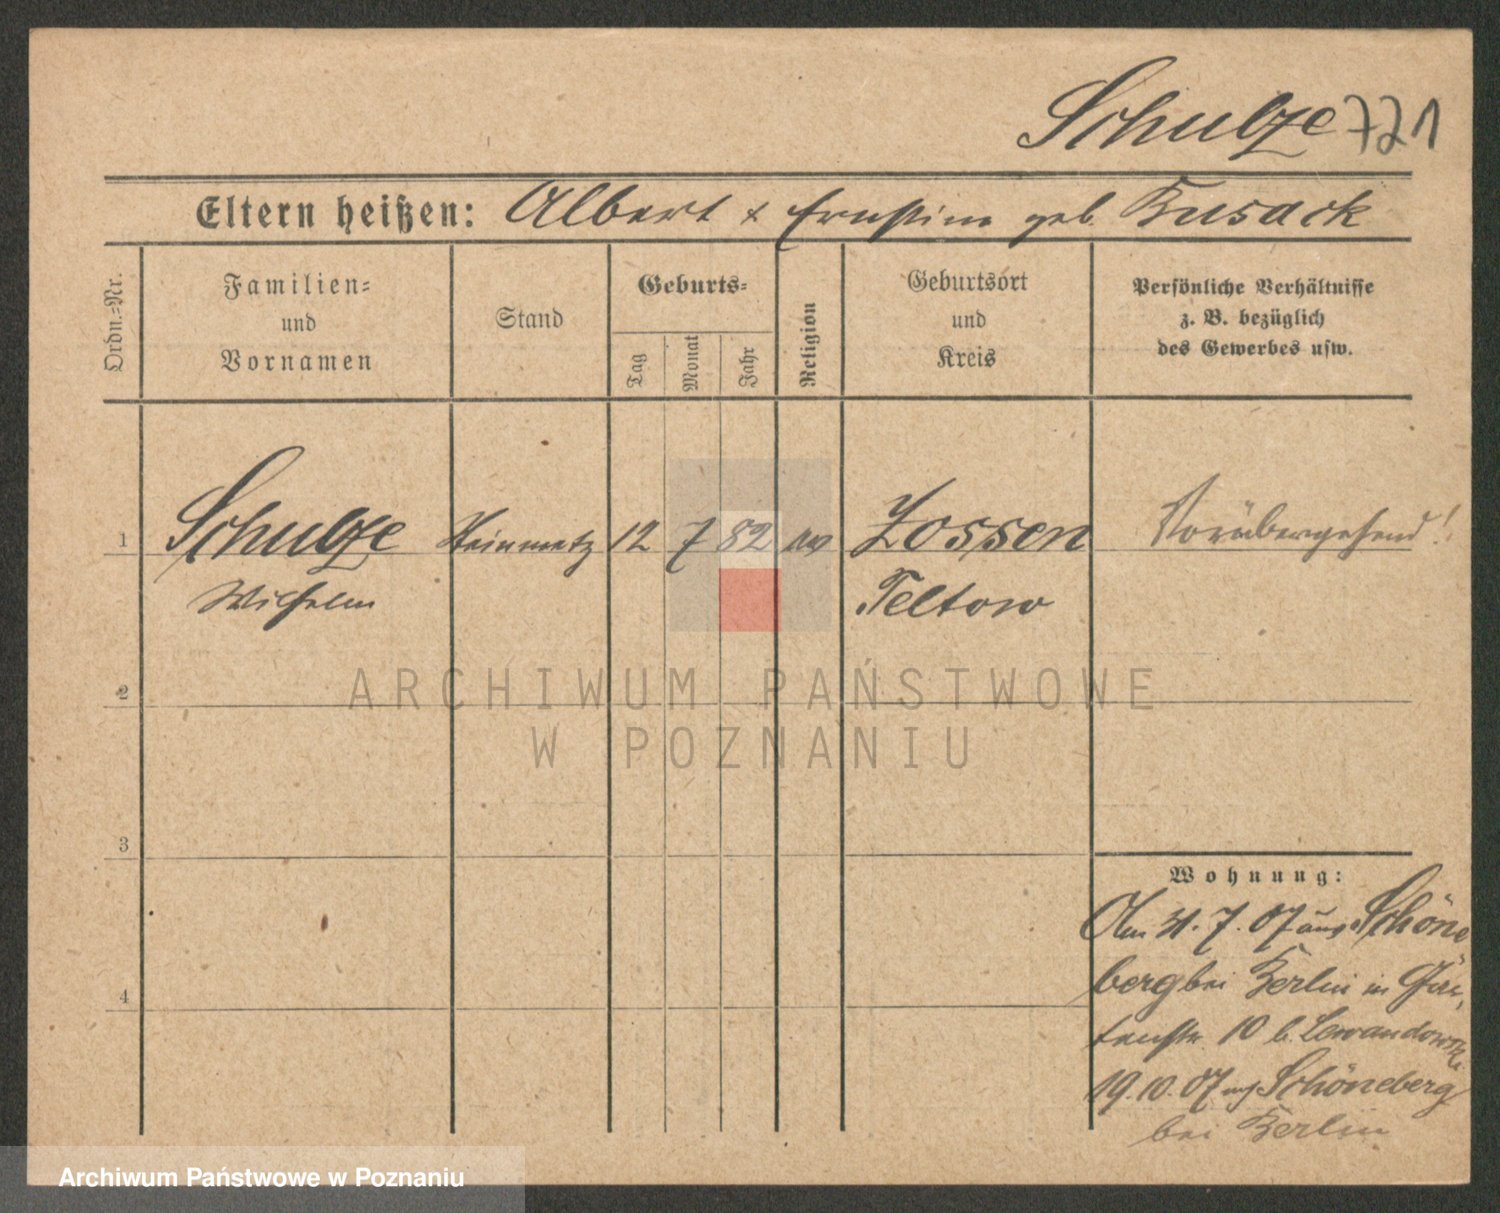 Schulze 721
Eltern heißen: Albert & Ernstine geb. Kusack
Ordn.=Nr.
Familien=
und
Vornamen
Stand
Geburts=
Tag
Monat
Jahr
Religion
Geburtsort
und
Kreis
Persönliche Verhältnisse
z. B. bezüglich
des Gewerbes usw.
1 Schulze Steinmetz 12 7 82 ev Zossen Vorübergehend!
Wilhelm Teltow
ARCHIWUM PAŃSTWOWE
2
W POZNANIU
3
Wohnung:
Am 31. 7. 07 aus Schöne
berg bei Berlin in Gär-
4
tenstr. 10 b. Lewandowski
19. 10. 07 nach Schöneberg
bei Berlin
Archiwum Państwowe w Poznaniu